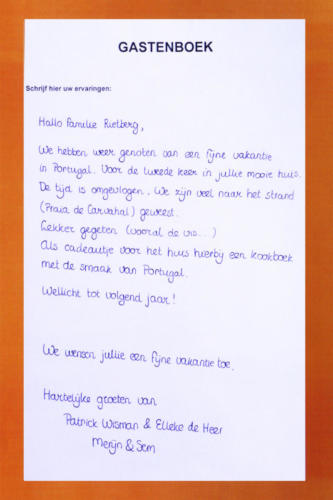 GASTENBOEK
Schrijf hier uw ervaringen:
Hallo Familie Rietberg,
We hebben weer genoten van een fijne vakantie
in Portugal. Voor de tweede keer in jullie mooie huis.
De tijd is omgevlogen. We zijn veel naar het strand
(Praia de Carvahal) geweest.
Lekker gegeten (vooral de vis...)
Als cadeautje voor het huis hierbij een kookboek
met de smaak van Portugal.
Wellicht tot volgend jaar!
We wensen jullie een fijne vakantie toe.
Hartelijke groeten van
Patrick Wisman & Elleke de Heer
Merijn & Sem